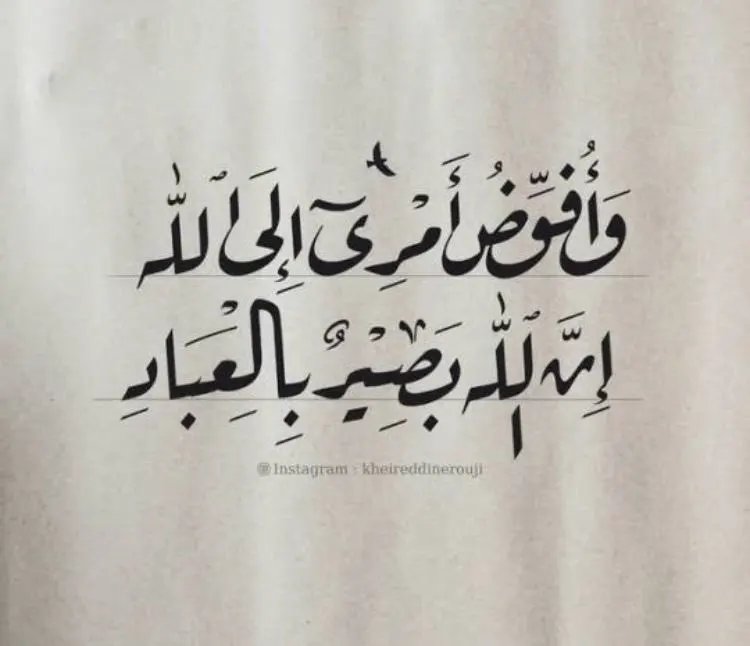 وَأُفَوِّضُ أَمْرِىٓ إِلَى ٱللَّٰه
إِنَّ ٱللَّٰه بَصِيْرٌ بِالْعِبَادِ
@ Instagram : kheireddinerouji